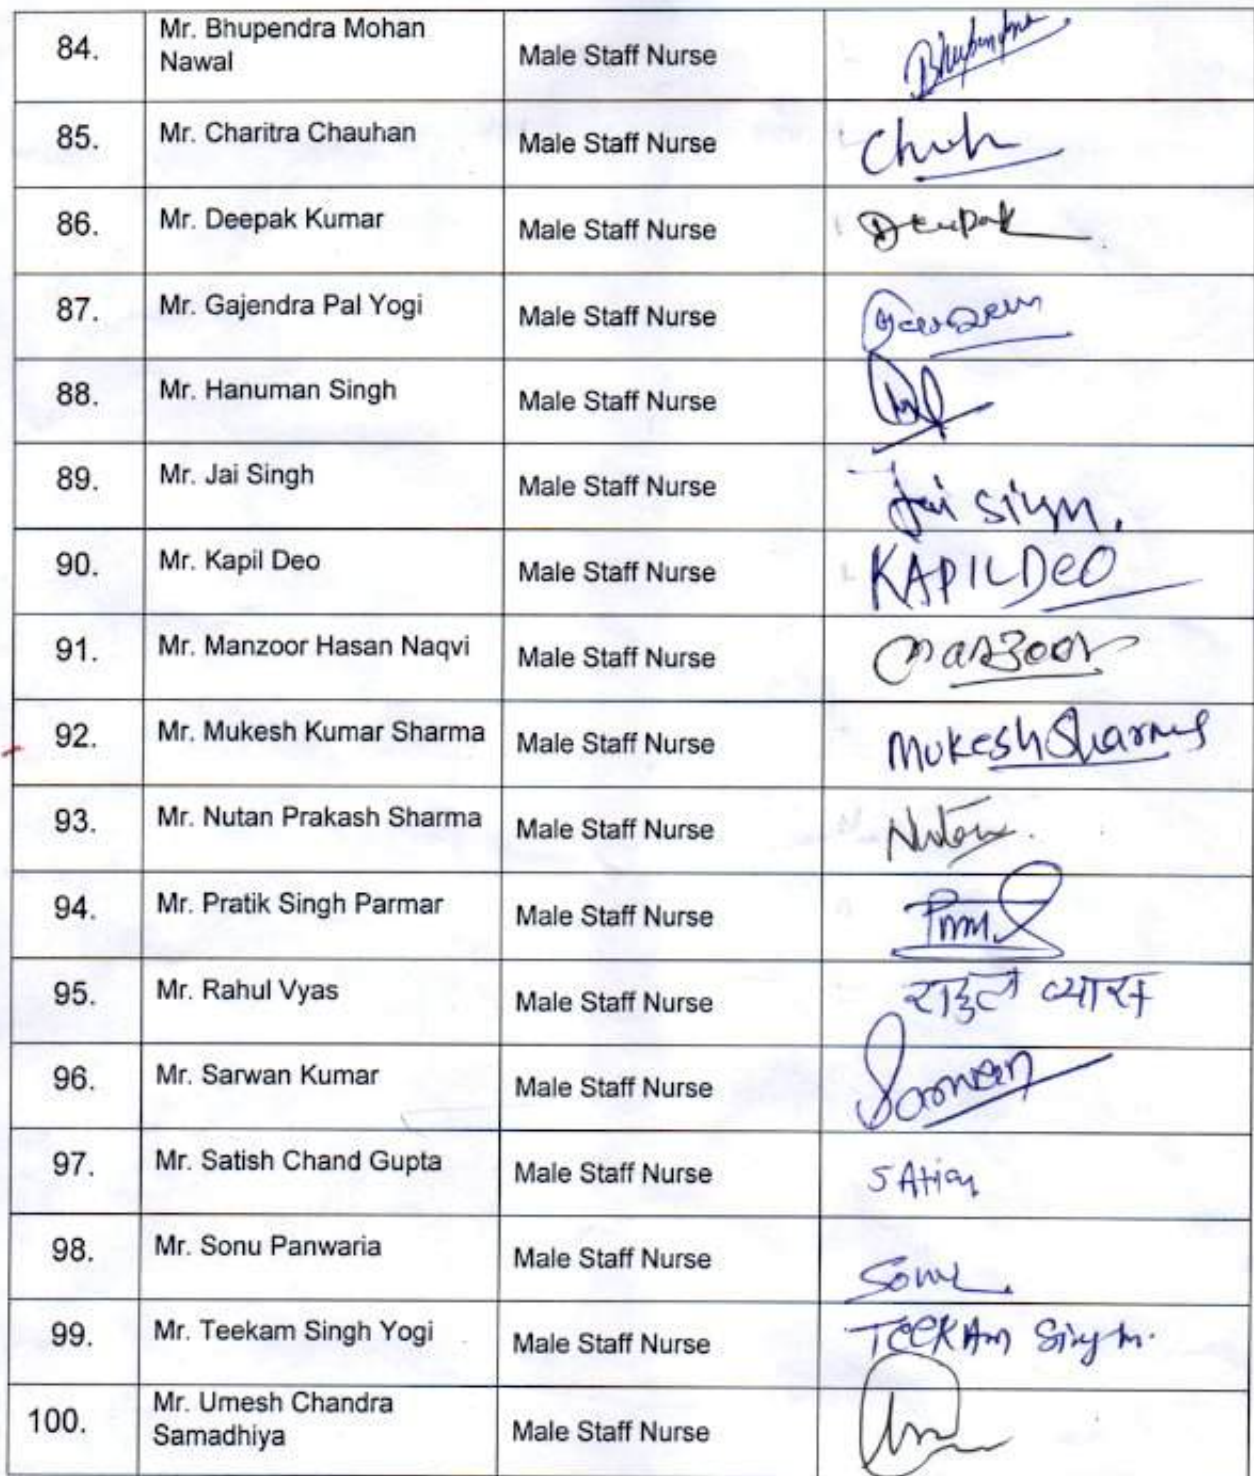 84. Mr. Bhupendra Mohan Nawal Male Staff Nurse Bhupendra
85. Mr. Charitra Chauhan Male Staff Nurse
86. Mr. Deepak Kumar Male Staff Nurse Deepak
87. Mr. Gajendra Pal Yogi Male Staff Nurse
88. Mr. Hanuman Singh Male Staff Nurse
89. Mr. Jai Singh Male Staff Nurse Jai Singh.
90. Mr. Kapil Deo Male Staff Nurse KAPIL DeO
91. Mr. Manzoor Hasan Naqvi Male Staff Nurse Manzoor
92. Mr. Mukesh Kumar Sharma Male Staff Nurse Mukesh Sharma
93. Mr. Nutan Prakash Sharma Male Staff Nurse Nutan.
94. Mr. Pratik Singh Parmar Male Staff Nurse
95. Mr. Rahul Vyas Male Staff Nurse राहुल व्यास
96. Mr. Sarwan Kumar Male Staff Nurse Sarwan
97. Mr. Satish Chand Gupta Male Staff Nurse SAtish
98. Mr. Sonu Panwaria Male Staff Nurse Sonu
99. Mr. Teekam Singh Yogi Male Staff Nurse TeeKAm Singh.
100. Mr. Umesh Chandra Samadhiya Male Staff Nurse